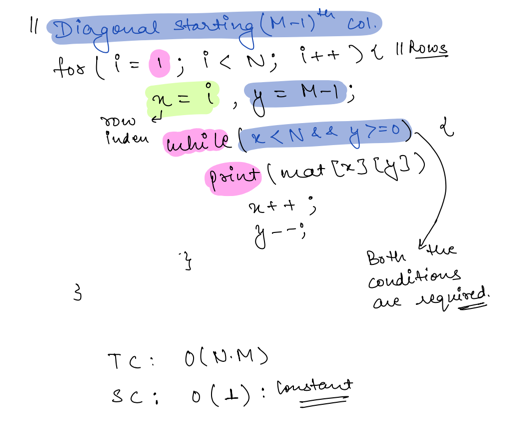 // Diagonal starting (M-1)th col.
for ( i = 1 ; i < N ; i++ ) { // Rows
x = i , y = M-1 ;
row index
while ( x < N && y >= 0 ) {
print ( mat [x] [y] )
x++ ;
y--;
}
Both the conditions are required.
}
TC : O(N.M)
SC : O(1) : Constant